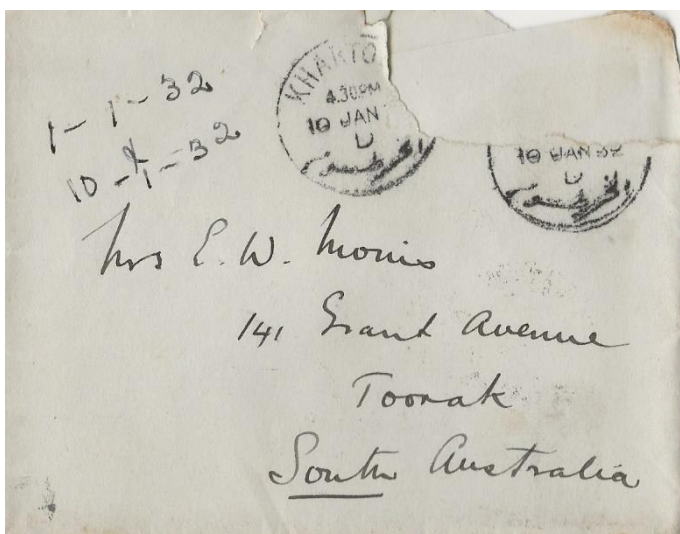 1-1-32
10-1-32
KHARTO
4.30PM
10 JAN
D
الخرطوم
10 JAN 32
D
الخرطوم
Mrs E. W. Morris
141 Grant Avenue
Toorak
South Australia